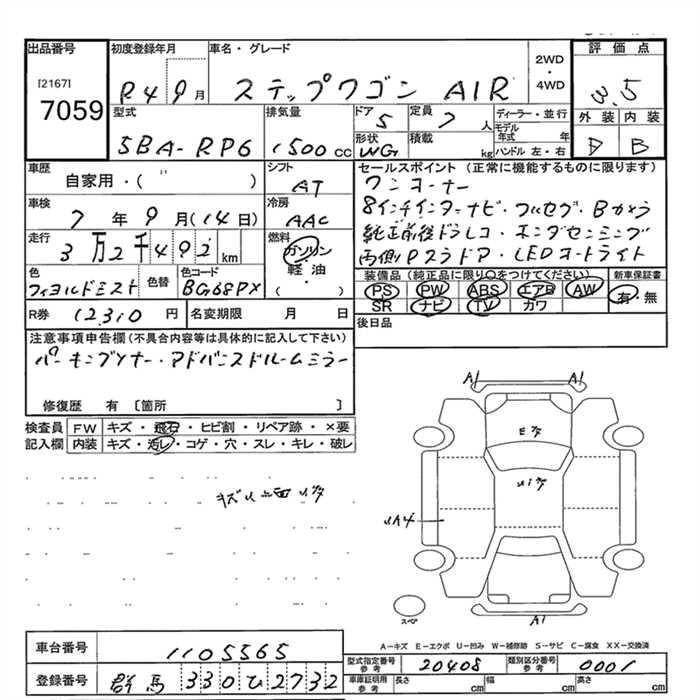 出品番号 初度登録年月 車名・グレード 2WD ・ 4WD 評価点
[2167] 7059 R4 9月 ステップワゴン AIR 3.5
型式 排気量 ドア 5 定員 7人 ディーラー・並行 外装 内装
5BA-RP6 1500cc 形状 WG 積載 kg モデル年式 年 ハンドル 左・右 D B
車歴 シフト セールスポイント(正常に機能するものに限ります)
自家用・( ) AT ワンオーナー
車検 冷房 8インチインターナビ・フルセグ・Bカメラ
7年9月(14日) AAC 純正前後ドラレコ・ホンダセンシング
走行 3万2千492km 燃料 ガソリン・軽油・( ) 両側Pスラドア・LEDヘッドライト
色 色替 色コード 装備品(純正品に限り○をつけてください) 新車保証書
フィヨルドミスト BG68PX PS PW ABS エアB AW 有・無
SR ナビ TV カワ
R券 12310円 名変期限 月 日 後日品
注意事項申告欄(不具合内容等は具体的に記入して下さい)
パーキングソナー・アドバンスドルームミラー
修復歴 有 [箇所 ]
検査員記入欄 FW キズ・飛石・ヒビ割・リペア跡・×要
内装 キズ・汚レ・コゲ・穴・スレ・キレ・破レ
A1 A1
A1
スペア
A-キズ E-エクボ U-凹み W-補修跡 S-サビ C-腐食 XX-交換済
車台番号 1105565
型式指定番号 参考 20408 類別区分番号 参考 0001
登録番号 群馬 330 ひ 2732
車庫証明用 参考 長さ cm 幅 cm 高さ cm